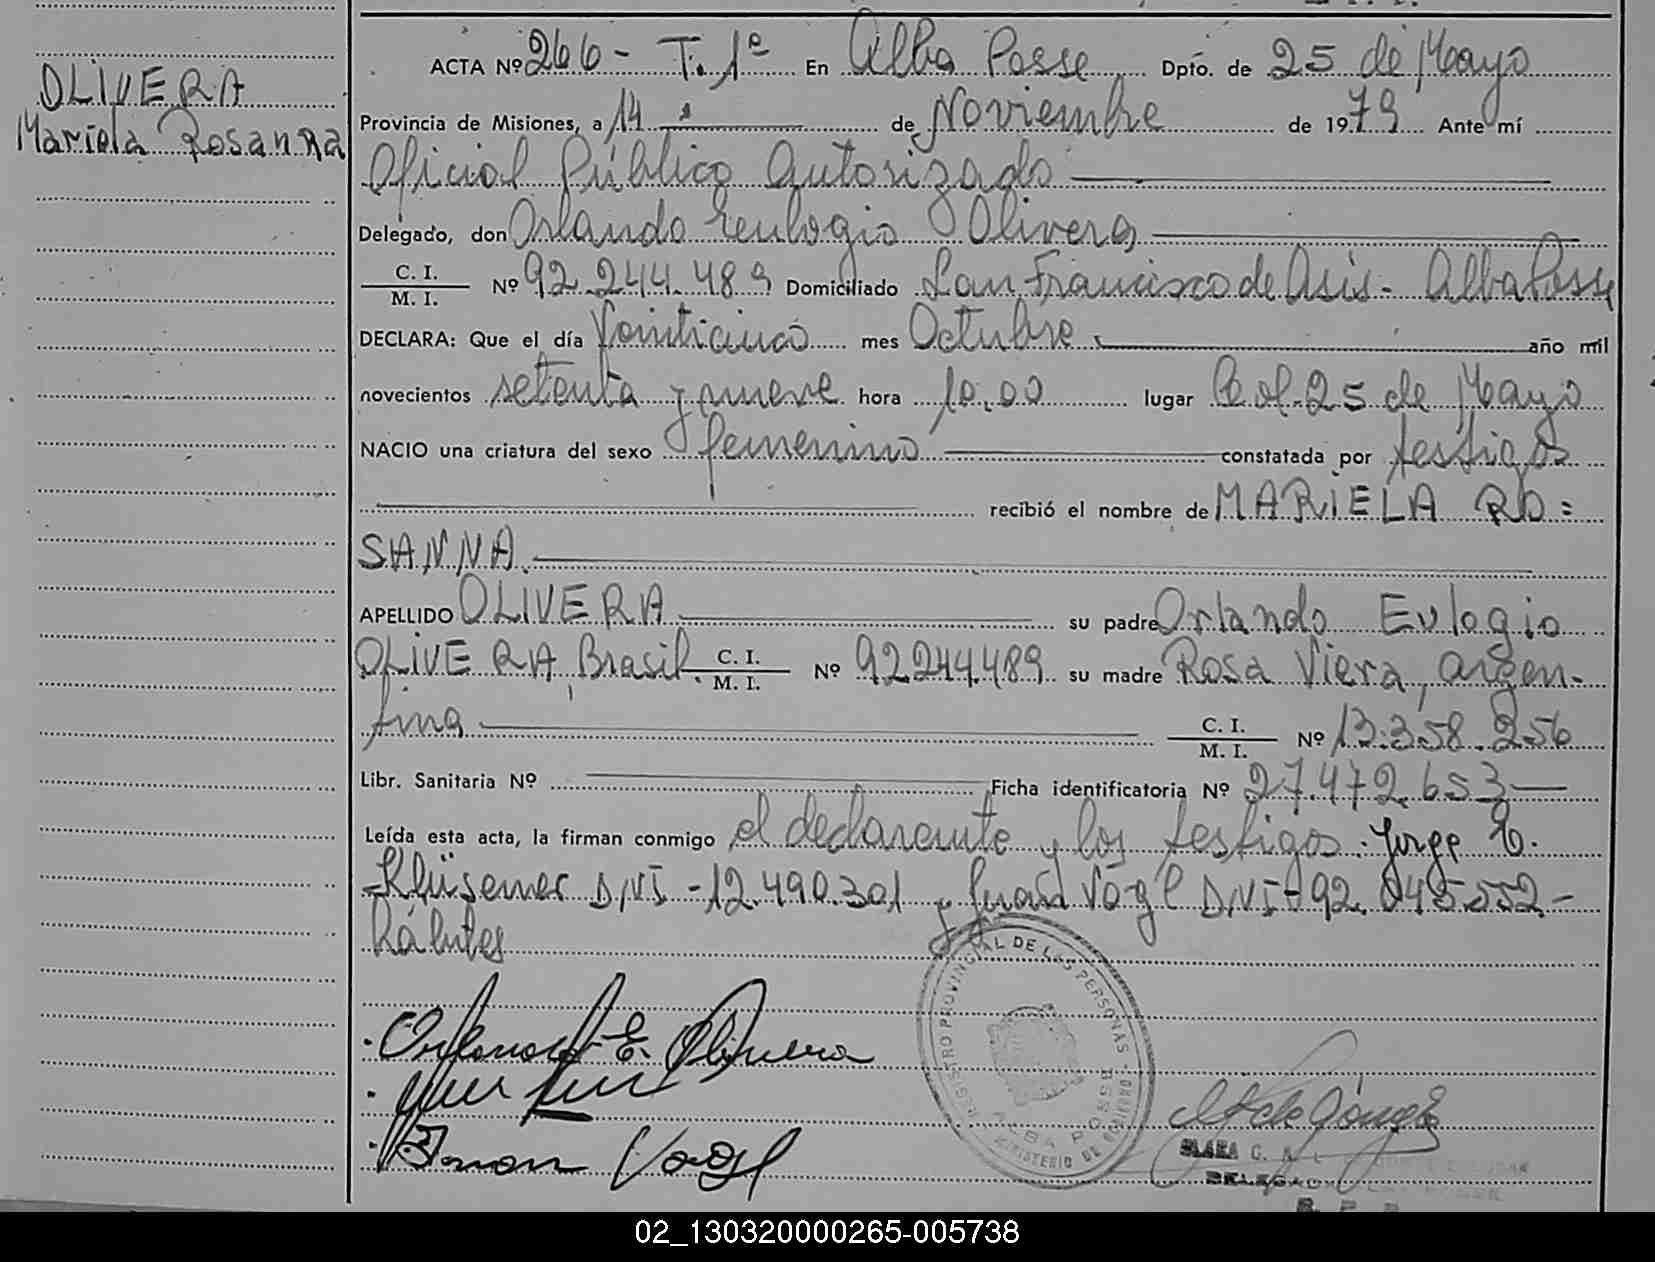 OLIVERA
Mariela Rosanna
ACTA Nº 266 - T. 1º En Alba Posse Dpto. de 25 de Mayo
Provincia de Misiones, a 14 de Noviembre de 1979 Ante mí
Oficial Público Autorizado
Delegado, don Orlando Eulogio Olivera
C. I. / M. I. Nº 92.244.489 Domiciliado San Francisco de Asis - Alba Posse
DECLARA: Que el día Veinticinco mes Octubre año mil
novecientos setenta y nueve hora 10,00 lugar Col. 25 de Mayo
NACIO una criatura del sexo femenino constatada por testigos
recibió el nombre de MARIELA RO=
SANNA
APELLIDO OLIVERA su padre Orlando Eulogio
OLIVERA, Brasil. C. I. / M. I. Nº 92244.489 su madre Rosa Viera, argen-
tina C. I. / M. I. Nº 13.358.256
Libr. Sanitaria Nº Ficha identificatoria Nº 27.472.653
Leída esta acta, la firman conmigo el declarante y los testigos: Jorge E.
Klüsener DNI - 12.490.301 y Vogel DNI - 92.045.552 -
hábiles
REGISTRO PROVINCIAL DE LAS PERSONAS
ALBA POSSE
MINISTERIO DE GOBIERNO
Orlando E. Olivera
Vogel
CLARA C.
DELEGADA
02_130320000265-005738